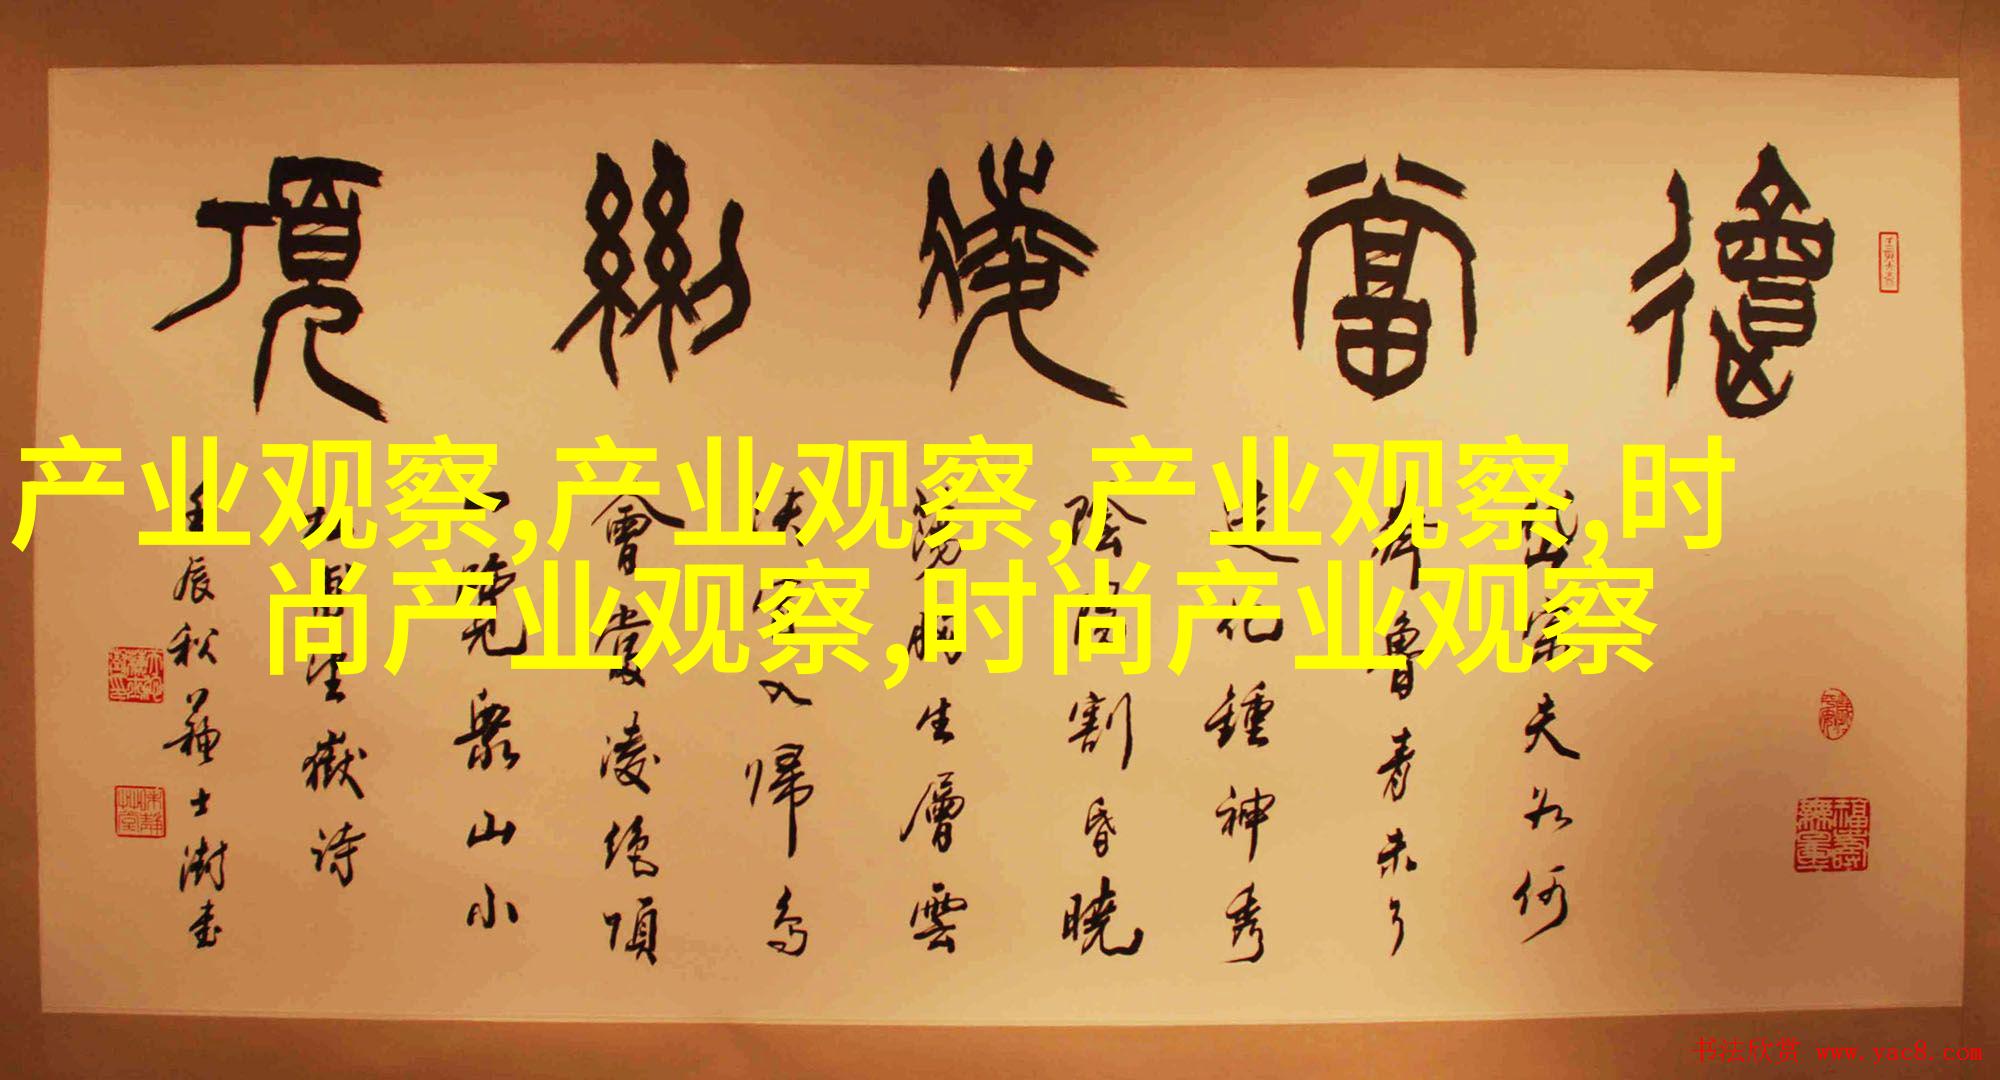 會當凌絕頂
岱宗夫如何
齊魯青未了
造化鍾神秀
陰陽割昏曉
蕩胸生層雲
決眥入歸鳥
會當凌絕頂
一覽衆山小
望嶽詩
壬辰秋蘇士澍書
福壽無量
产业观察,产业观察,产业观察,时
尚产业观察,时尚产业观察
书法欣赏 www.yac8.com